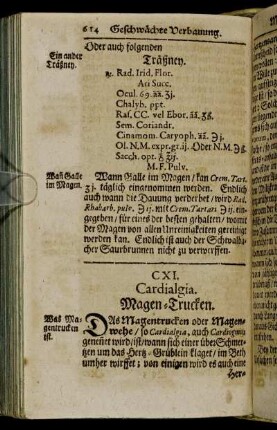 614 Geschwächte Verdauung.
Oder auch folgenden
Ein ander Träßney.
Träßney.
℞. Rad. Irid. Flor.
Ari Succ.
Ocul. 69. āā. ʒj.
Chalyb. ppt.
Raſ. CC. vel Ebor. āā. ʒß.
Sem. Coriandr.
Cinamom. Caryoph. āā. ℈j.
Ol. N.M. expr. gr. ij. Oder N.M. ℈ß.
Sacch. opt. ℥iij.
M. F. Pulv.
Wañ Galle im Magen.
Wann Galle im Magen / kan Crem. Tart.
ʒj. täglich eingenommen werden. Endlich
auch wann die Dauung verderbet / wird Rad.
Rhabarb. pulv. ℈ij. mit Crem. Tartari ℈ij. ein-
gegeben / für eines der besten gehalten / womit
der Magen von allen Unreinigkeiten gereiniget
werden kan. Endlich ist auch der Schwalba-
cher Saurbrunnen nicht zu verwerffen.
CXI.
Cardialgia.
Magen-Trucken.
Was Ma-
gentrucken
ist.
DAs Magentrucken oder Magen-
wehe / so Cardialgia, auch Cardiogmus
genennt wird / ist / wann sich einer über Schmer-
tzen um das Hertz-Grüblein klaget / im Beth
umher wirfft; von einigen wird es auch eine
Her-